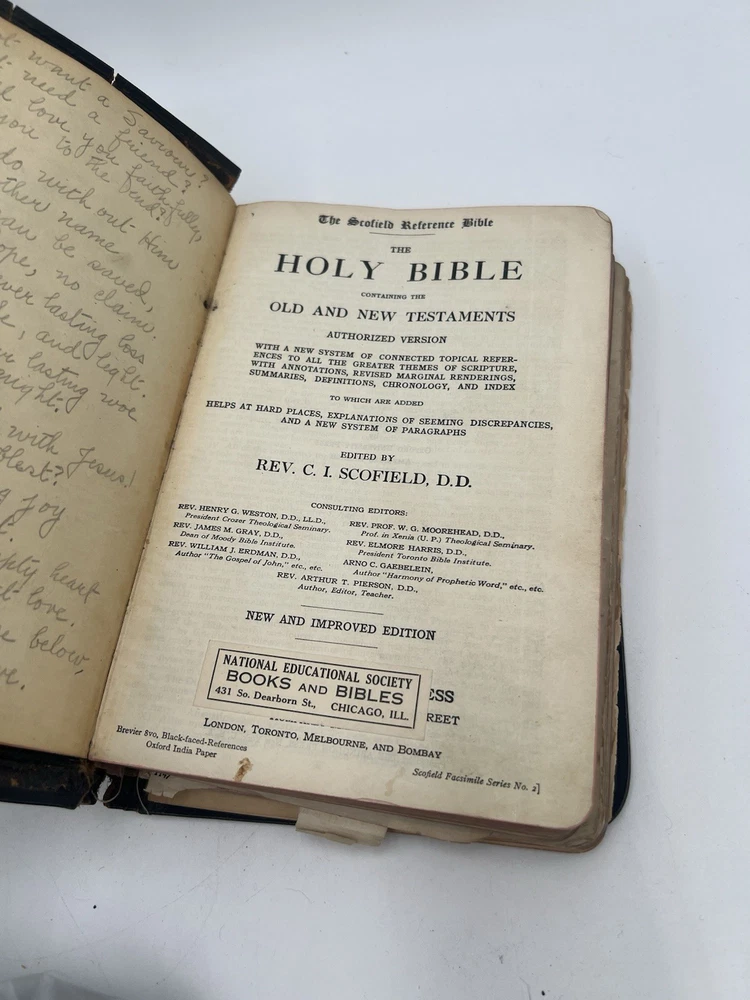 t want a Saviour?
t need a friend?
d love you faithfully,
you to the end?
do with out Him
ther name
can be saved,
ope, no claim.
ver lasting loss
e, and light.
r lasting woe
night.
with Jesus!
blest?
g joy
pty heart
t love.
e below,
ve.
The Scofield Reference Bible
THE
HOLY BIBLE
CONTAINING THE
OLD AND NEW TESTAMENTS
AUTHORIZED VERSION
WITH A NEW SYSTEM OF CONNECTED TOPICAL REFER-
ENCES TO ALL THE GREATER THEMES OF SCRIPTURE,
WITH ANNOTATIONS, REVISED MARGINAL RENDERINGS,
SUMMARIES, DEFINITIONS, CHRONOLOGY, AND INDEX
TO WHICH ARE ADDED
HELPS AT HARD PLACES, EXPLANATIONS OF SEEMING DISCREPANCIES,
AND A NEW SYSTEM OF PARAGRAPHS
EDITED BY
REV. C. I. SCOFIELD, D.D.
CONSULTING EDITORS:
REV. HENRY G. WESTON, D.D., LL.D.,
President Crozer Theological Seminary.
REV. JAMES M. GRAY, D.D.,
Dean of Moody Bible Institute.
REV. WILLIAM J. ERDMAN, D.D.,
Author "The Gospel of John," etc., etc.
REV. PROF. W. G. MOOREHEAD, D.D.,
Prof. in Xenia (U. P.) Theological Seminary.
REV. ELMORE HARRIS, D.D.,
President Toronto Bible Institute.
ARNO C. GAEBELEIN,
Author "Harmony of Prophetic Word," etc., etc.
REV. ARTHUR T. PIERSON, D.D.,
Author, Editor, Teacher.
NEW AND IMPROVED EDITION
NATIONAL EDUCATIONAL SOCIETY
BOOKS AND BIBLES
431 So. Dearborn St., CHICAGO, ILL.
ESS
STREET
LONDON, TORONTO, MELBOURNE, AND BOMBAY
Brevier 8vo, Black-faced-References
Oxford India Paper
Scofield Facsimile Series No. 2]